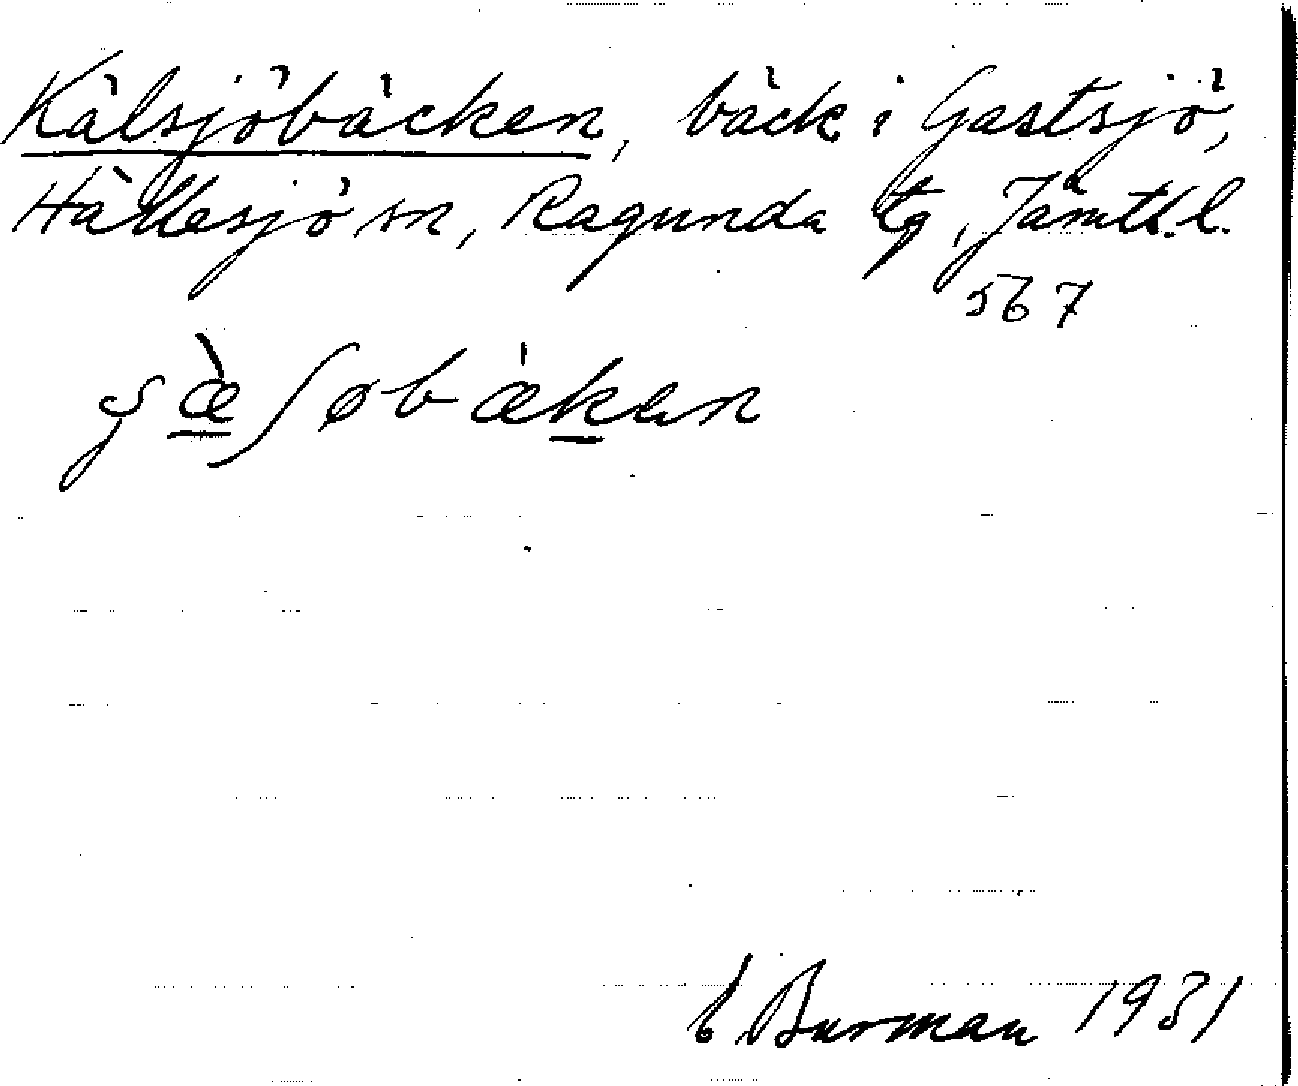 Kälsjöbäcken, bäck i Gastsjö,
Hällesjö sn, Ragunda tg, Jämtl. l.
567
øbækan
E Burman 1931